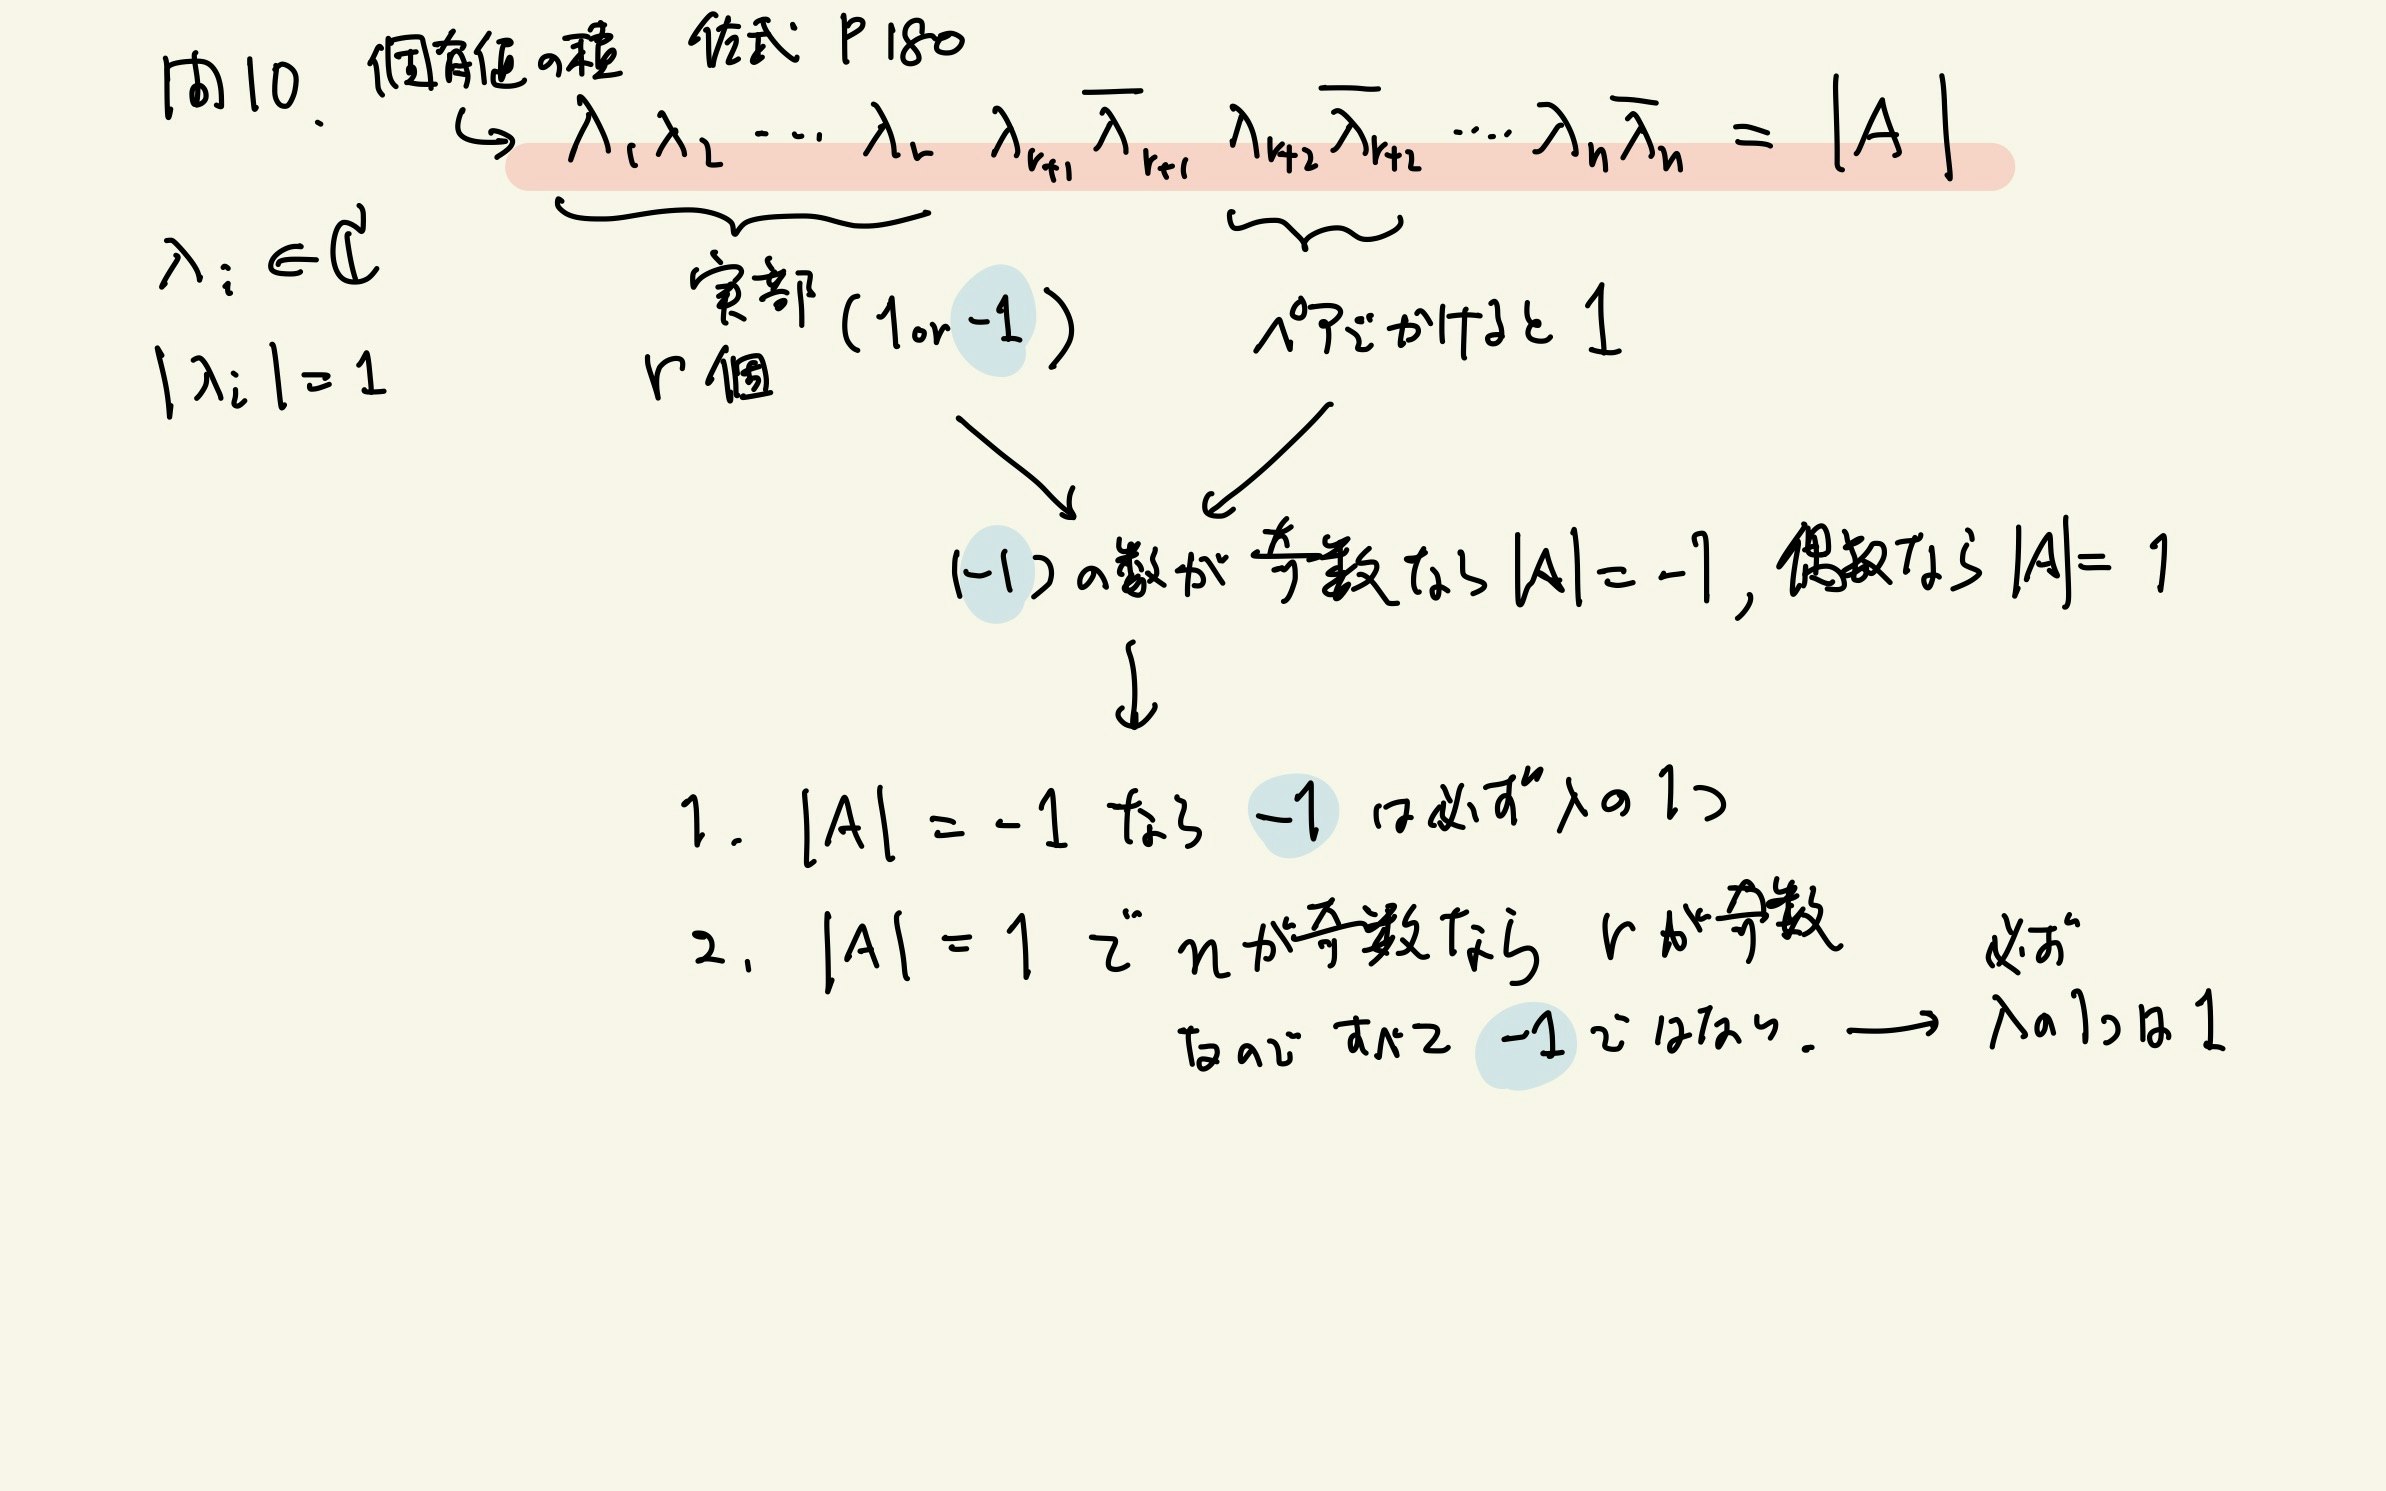 問10. 固有値の積 佐武 P180
λ₁λ₂ … λᵣ λᵣ₊₁ λ̅ᵣ₊₁ λᵣ₊₂ λ̅ᵣ₊₂ … λₙ λ̅ₙ = |A|
λᵢ ∈ ℂ 実部 (1 or -1) ペアでかけると 1
|λᵢ| = 1 r個
(-1)の数が奇数なら|A| = -1, 偶数なら|A| = 1
1. |A| = -1 なら -1 は必ず λの1つ
2. |A| = 1 で nが奇数なら rが奇数
なので すべて -1 ではない. → 必ず λの1つは1